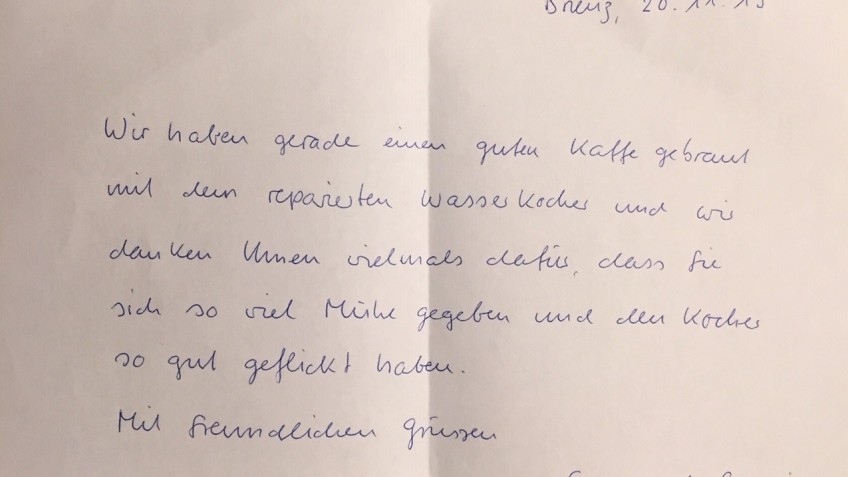 20.11.
Wir haben gerade einen guten Kaffe gebraut
mit dem reparierten Wasserkocher und wir
danken Ihnen vielmals dafür, dass Sie
sich so viel Mühe gegeben und den Kocher
so gut geflickt haben.
Mit freundlichen Grüssen